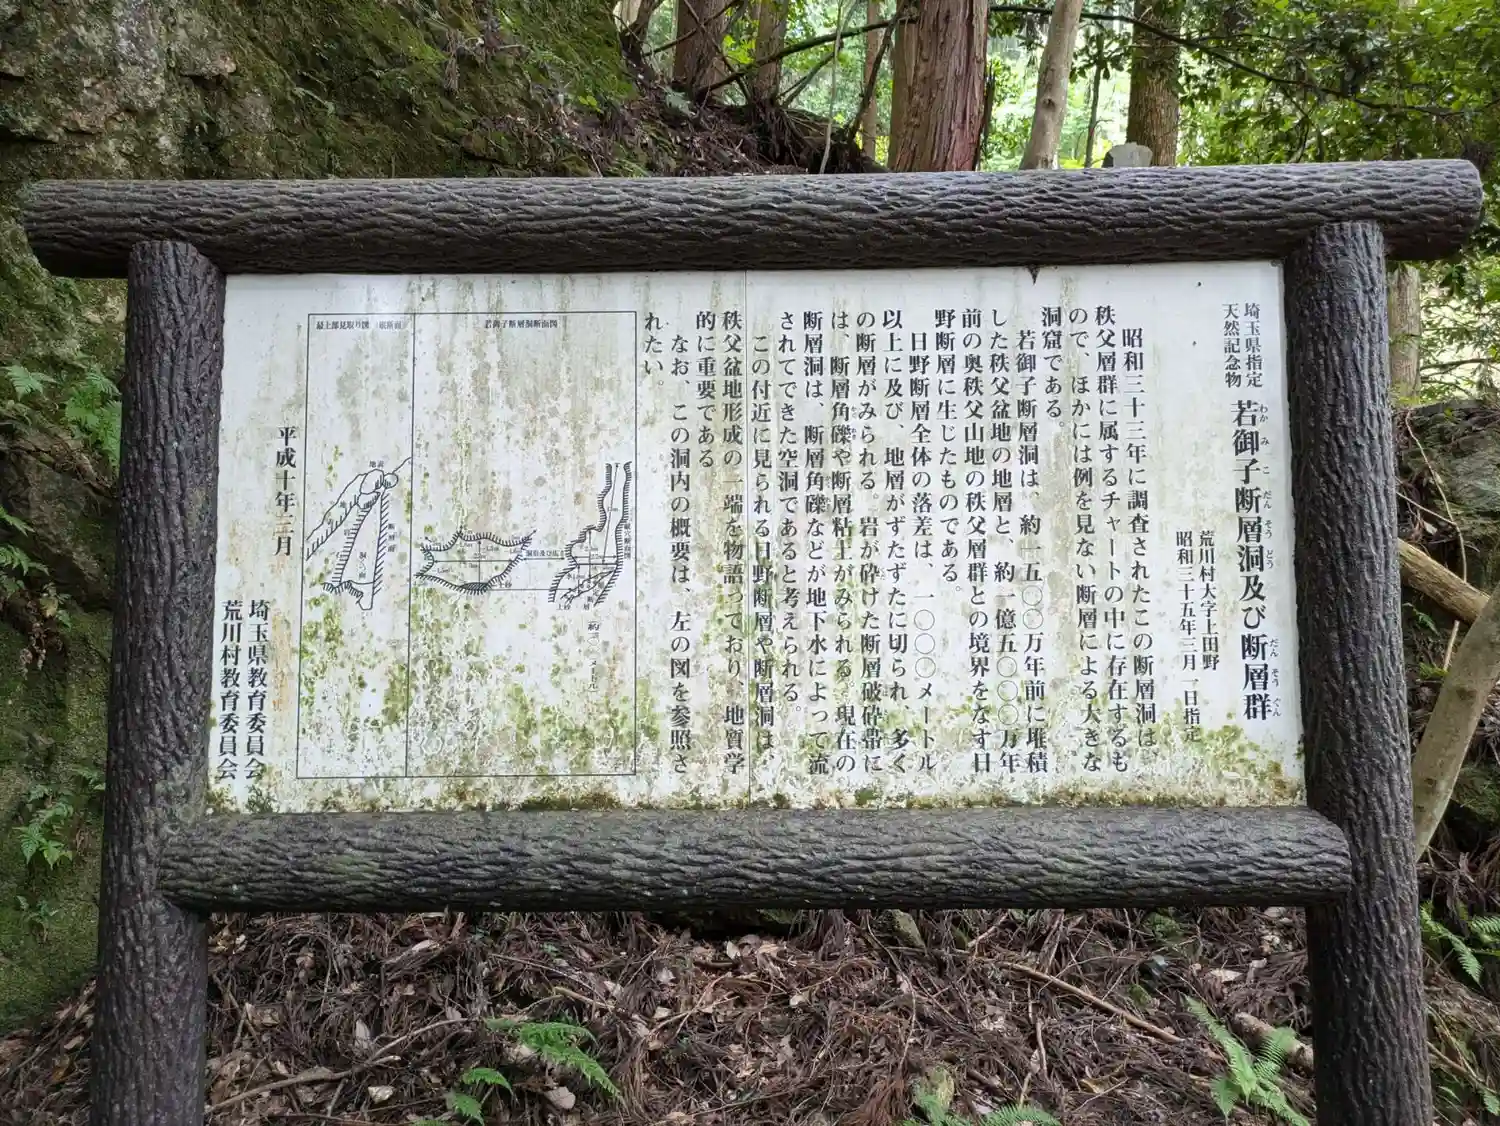 埼玉県指定
天然記念物
若御子断層洞及び断層群
わか み こ だん そう どう だん そう ぐん
荒川村大字上田野
昭和三十五年三月一日指定
昭和三十三年に調査されたこの断層洞は、
秩父層群に属するチャートの中に存在するも
ので、ほかには例を見ない断層による大きな
洞窟である。
若御子断層洞は、約一五〇〇万年前に堆積
した秩父盆地の地層と、約一億五〇〇〇万年
前の奥秩父山地の秩父層群との境界をなす日
野断層に生じたものである。
日野断層全体の落差は、一〇〇〇メートル
以上に及び、地層がずたずたに切られ、多く
の断層がみられる。岩が砕けた断層破砕帯に
は、断層角礫や断層粘土がみられる。現在の
断層洞は、断層角礫などが地下水によって流
されてできた空洞であると考えられる。
この付近に見られる日野断層や断層洞は、
秩父盆地形成の一端を物語っており、地質学
的に重要である
なお、この洞内の概要は、左の図を参照さ
れたい。
若御子断層洞断面図
最上部見取り図
断面
地表
断層面
平成十年三月
埼玉県教育委員会
荒川村教育委員会